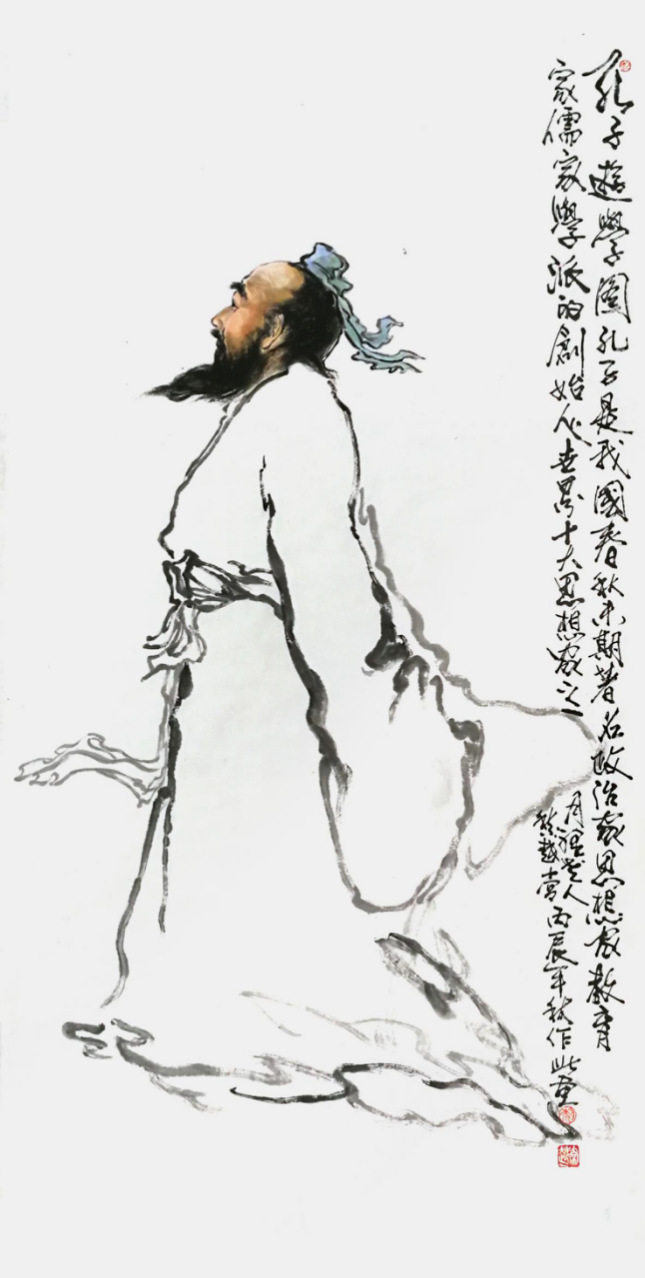 孔子遊學圖孔子是我國春秋末期著名政治家思想家教育
家儒家學派的創始人世界十大思想家之一
月裡老人
熊越常丙辰年秋作此畫